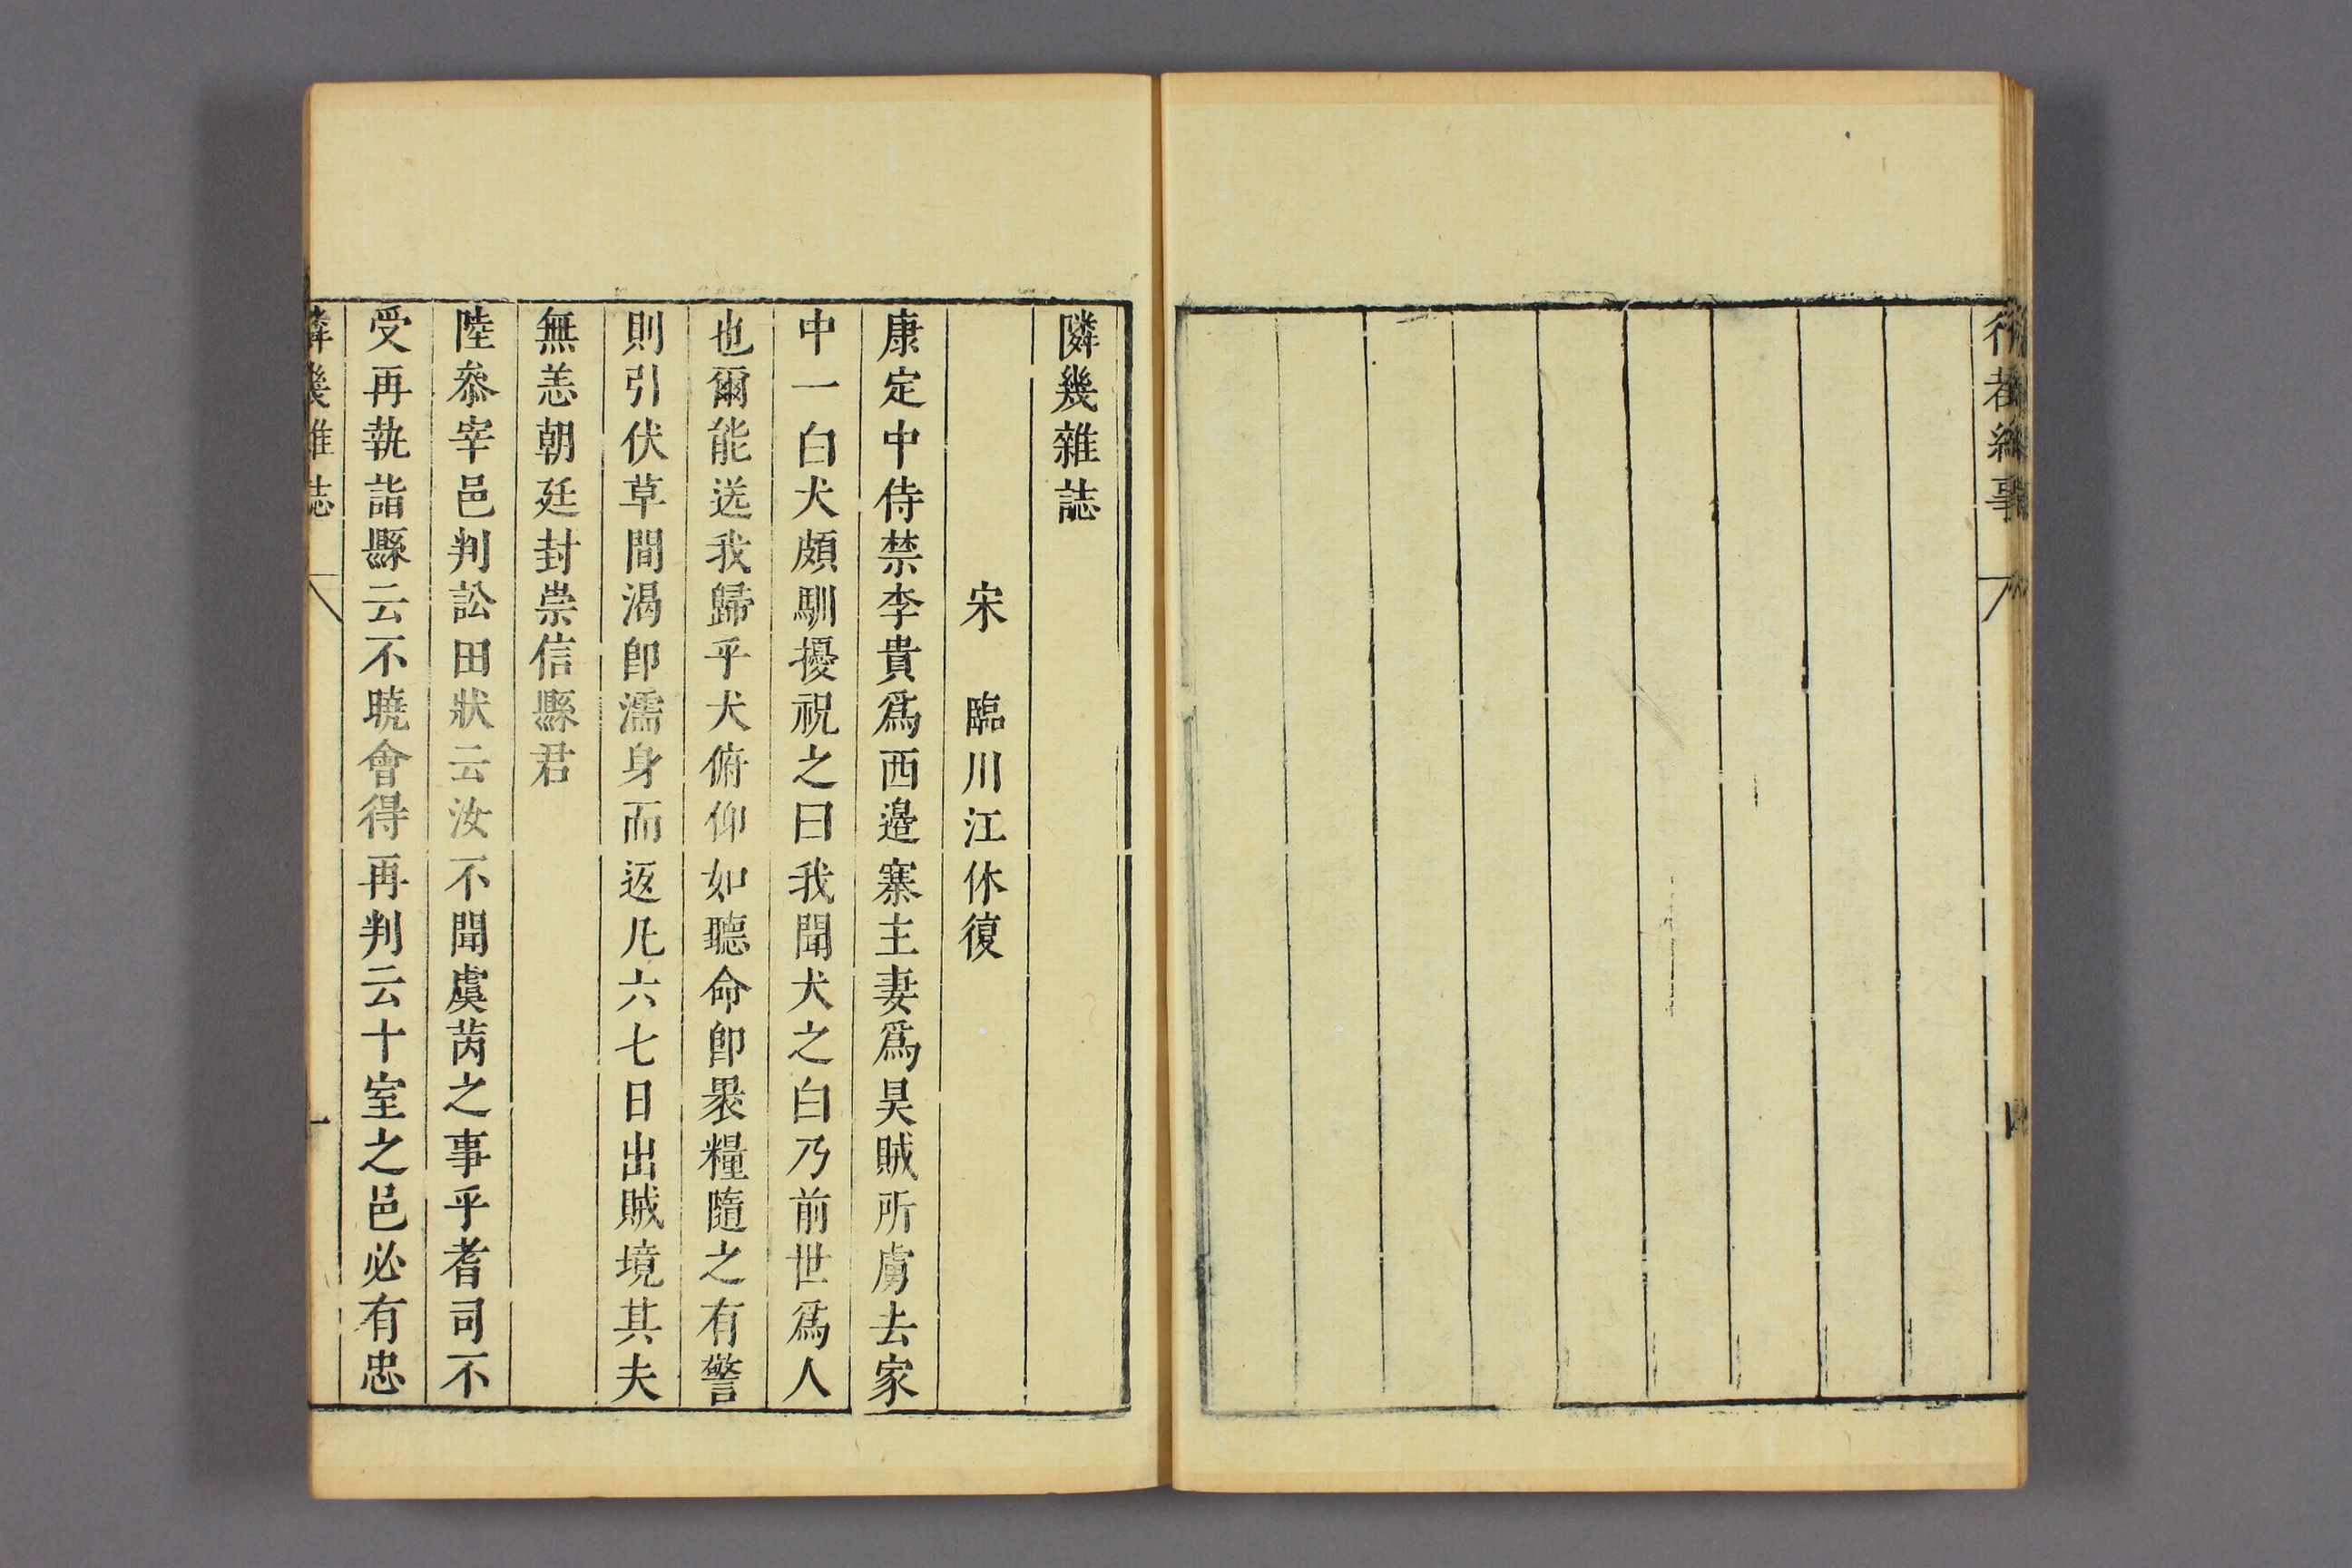 隣幾雜誌
宋　臨川江休復
康定中侍禁李貴爲西邉寨主妻爲昊賊所虜去家
中一白犬頗馴擾祝之曰我聞犬之白乃前世爲人
也爾能送我歸乎犬俯仰如聽命卽褁糧隨之有警
則引伏草間渴卽濡身而返凡六七日出賊境其夫
無恙朝廷封崇信縣君
陸叅宰邑判訟田狀云汝不聞虞芮之事乎耆司不
受再執詣縣云不曉會得再判云十室之邑必有忠
隣幾雜誌
一